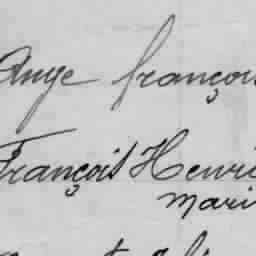 Ange françois
François Henri
Mari